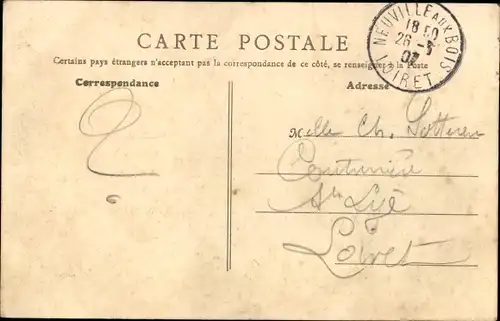 CARTE POSTALE
Certains pays étrangers n'acceptant pas la correspondance de ce côté, se renseigner à la Poste
Correspondance
Adresse
NEUVILLE AUX BOIS
18
26
07
LOIRET
?
Melle Ch.
Couturière
St Lyé
Loiret